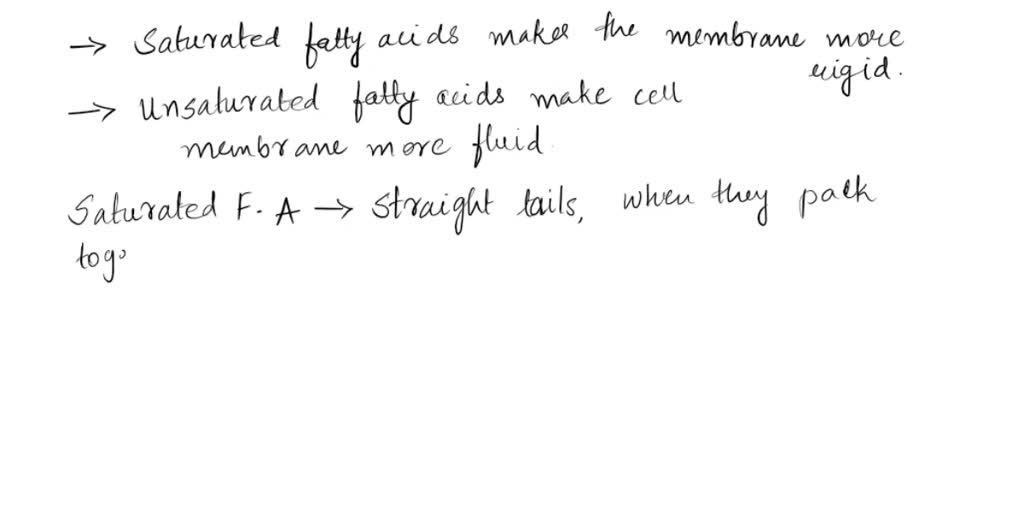 → Saturated fatty acids makes the membrane more
rigid.
→ Unsaturated fatty acids make cell
membrane more fluid.
Saturated F. A → Straight tails, when they pack
tog